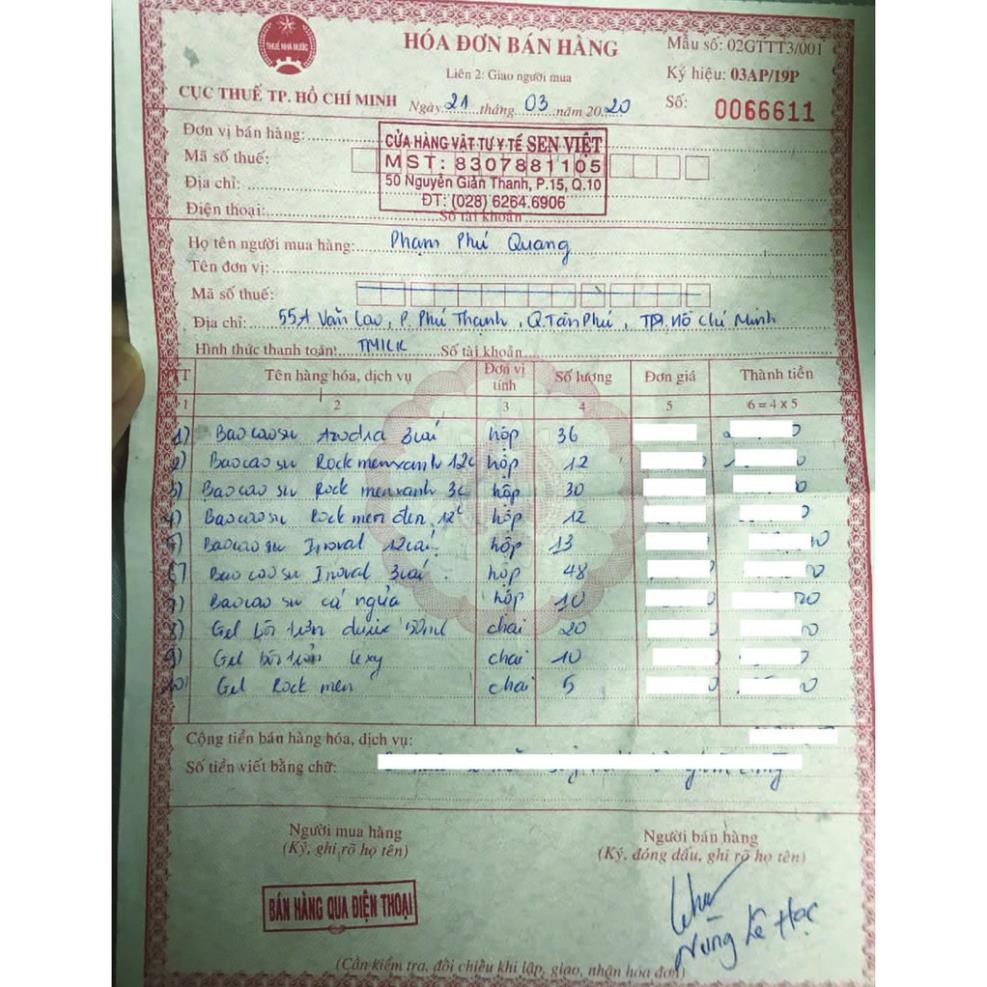 THUẾ NHÀ NƯỚC
HÓA ĐƠN BÁN HÀNG
Mẫu số: 02GTTT3/001
Liên 2: Giao người mua
Ký hiệu: 03AP/19P
CỤC THUẾ TP. HỒ CHÍ MINH
Ngày 21 tháng 03 năm 2020
Số: 0066611
Đơn vị bán hàng:
CỬA HÀNG VẬT TƯ Y TẾ SEN VIỆT
Mã số thuế:
MST: 8307881105
Địa chỉ:
50 Nguyễn Giản Thanh, P.15, Q.10
Điện thoại:
ĐT: (028) 6264.6906
Số tài khoản
Họ tên người mua hàng: Phạm Phú Quang
Tên đơn vị:
Mã số thuế:
Địa chỉ: 55A Văn Cao, P. Phú Thạnh, Q. Tân Phú, TP. Hồ Chí Minh
Hình thức thanh toán: TM/CK Số tài khoản
TT Tên hàng hóa, dịch vụ Đơn vị tính Số lượng Đơn giá Thành tiền
1 2 3 4 5 6 = 4 x 5
1) Bao cao su 3 cái hộp 36
2) Bao cao su Rock men xanh 12c hộp 12
3) Bao cao su Rock men xanh 3c hộp 30
4) Bao cao su Rock men đen 12c hộp 12
5) Bao cao su Inoval 12 cái hộp 13
6) Bao cao su Inoval 3 cái hộp 48
7) Bao cao su cá ngựa hộp 10
8) Gel bôi trơn durex 50ml chai 20
9) Gel bôi trơn lexy chai 10
10) Gel Rock men chai 5
Cộng tiền bán hàng hóa, dịch vụ:
Số tiền viết bằng chữ:
Người mua hàng
(Ký, ghi rõ họ tên)
Người bán hàng
(Ký, đóng dấu, ghi rõ họ tên)
BÁN HÀNG QUA ĐIỆN THOẠI
(Cần kiểm tra, đối chiếu khi lập, giao, nhận hóa đơn)